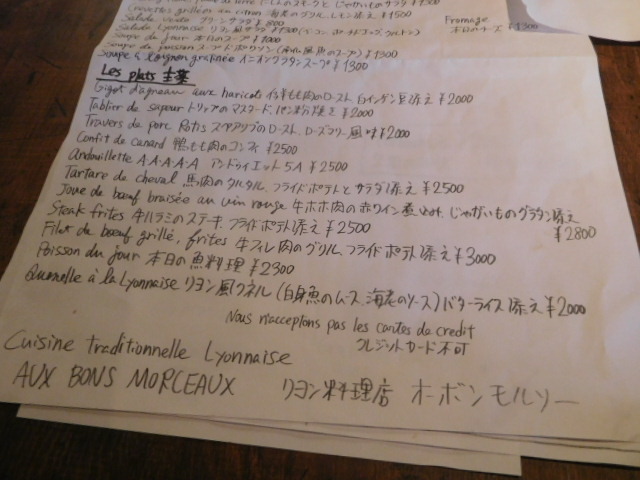 Crevettes grillées au citron 海老のグリル、レモン添え ¥1500
Salade verte グリーンサラダ ¥800
Fromage
本日のチーズ ¥1300
Salade Lyonnaise リヨン風サラダ ¥1300 (ベーコン、ポーチドエッグ、クルトン)
Soupe du jour 本日のスープ ¥1000
Soupe de poisson スープドポワソン (南仏風魚のスープ) ¥1300
Soupe à l'oignon gratinée オニオングラタンスープ ¥1300
Les plats 主菜
Gigot d'agneau aux haricots 仔羊もも肉のロースト、白インゲン豆添え ¥2000
Tablier de sapeur トリップのマスタード、パン粉焼き ¥2000
Travers de porc Rotis スペアリブのロースト、ローズマリー風味 ¥2000
Confit de canard 鴨もも肉のコンフィ ¥2500
Andouillette A.A.A.A.A アンドゥイエット 5A ¥2500
Tartare de cheval 馬肉のタルタル、フライドポテトとサラダ添え ¥2500
Joue de bœuf braisée au vin rouge 牛ホホ肉の赤ワイン煮込み、じゃがいものグラタン添え ¥2800
Steak frites 牛ハラミのステーキ、フライドポテト添え ¥2500
Filet de bœuf grillé, frites 牛フィレ肉のグリル、フライドポテト添え ¥3000
Poisson du jour 本日の魚料理 ¥2300
Quenelle à la Lyonnaise リヨン風クネル (白身魚のムース、海老のソース) バターライス添え ¥2000
Nous n'acceptons pas les cartes de credit
クレジットカード不可
Cuisine traditionnelle Lyonnaise
AUX BONS MORCEAUX リヨン料理店 オーボンモルソー